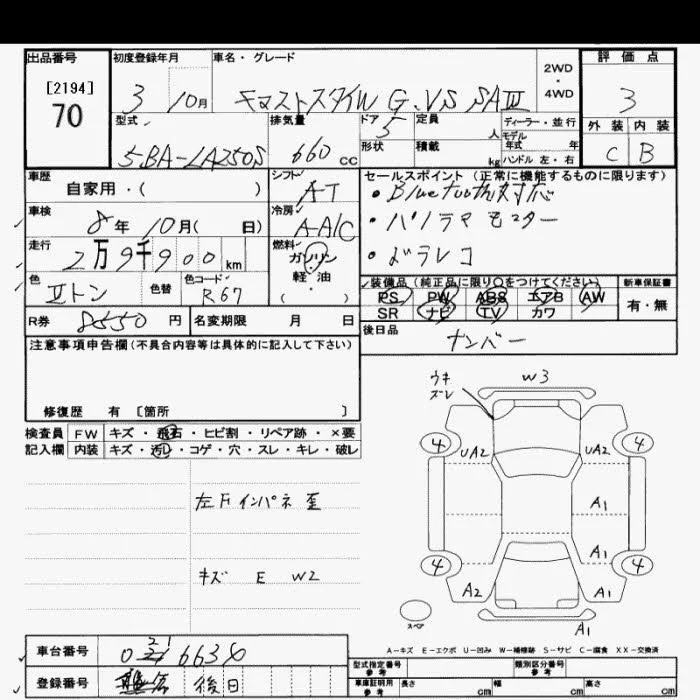 出品番号 初度登録年月 車名・グレード 評価点
[2194]
70
3 10月 キャストスタイル G.VS SAⅢ 2WD・4WD 3
型式 排気量 ドア 定員 ディーラー・並行 外装 内装
5 人 モデル年式 年
5BA-LA250S 660 cc 形状 積載 kg ハンドル 左・右 C B
車歴 シフト セールスポイント (正常に機能するものに限ります)
自家用・( ) AT ・Bluetooth対応
車検 8年 10月( 日) 冷房 AAC ・パノラマモニター
走行 2万9千900km 燃料 ガソリン・軽・油 ( ) ・ドラレコ
色 Ⅱトン 色替 色コード R67
装備品 (純正品に限り○をつけてください) 新車保証書
PS PW ABS エアB AW
SR ナビ TV カワ 有・無
R券 8550 円 名変期限 月 日
後日品 ナンバー
注意事項申告欄(不具合内容等は具体的に記入して下さい)
修復歴 有 〔箇所 〕
検査員 FW キズ・飛石・ヒビ割・リペア跡・×要
記入欄 内装 キズ・汚れ・コゲ・穴・スレ・キレ・破レ
左Fインパネ歪
キズ E W2
ウキ
ズレ
W3
4 UA2 UA2 4
A1
A1
4 A2 A1 4
スペア
A1
A-キズ E-エクボ U-凹み W-補修跡 S-サビ C-腐食 XX-交換済
車台番号
登録番号 後日
型式指定番号 参考 類別区分番号 参考
車庫証明用 参考 長さ cm 幅 cm 高さ cm